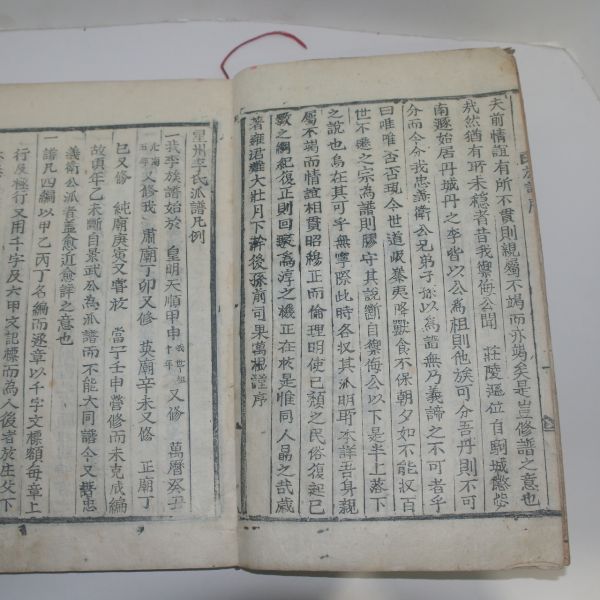 夫前情誼有所不貫則親屬不竭而亦竭矣是豈修譜之意也
哉然猶有所未穩者昔我禦侮公聞 莊陵遜位自駒城
南遯始居丹城丹之李皆以公爲祖則他族可分吾丹則不可
分而今今我忠義衛公兄弟子孫以爲譜無乃義諦之不可者乎
曰唯唯否否現今世道岌業夷降獸食不保朝夕如不能收百
世不遷之宗為譜則膠守其說斷自禦侮公以下是半上落下
之說也烏在其可乎無寧際此時各収其派明所本詳吾身親
屬不竭而情誼相貫昭穆正而倫理明使已頹之民俗復起已
斁之綱紀復正則回漓為淳之機正在於是惟同人勗之哉歲
著雍君灘大壯月下澣後孫前司果萬淑謹序
星州李氏派譜凡例
一我李族譜始於 皇明天順甲申我世祖十年又修 萬曆癸丑
光海五年又修我 肅廟丁卯又修 英廟辛未又修 正廟丁
巳又修 純廟庚寅又嘗於 當宁壬申營修而未克成編
故頃年乙未斷自景武公為派譜而不能大同譜今又暫忠
義衛公派者盖愈近愈詳之意也
一譜凡四編以甲乙丙丁名編而逐章以千字文標額每章上
行及極行又用千字及六甲文記標而為人後者放生父下
氏族譜序